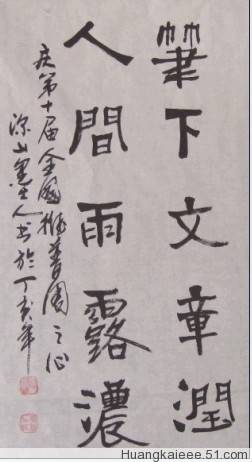 筆下文章潤
人間雨露濃
庆第十届全國推普周之际
深山墨士人书於丁亥年
Huangkaieee.51.com